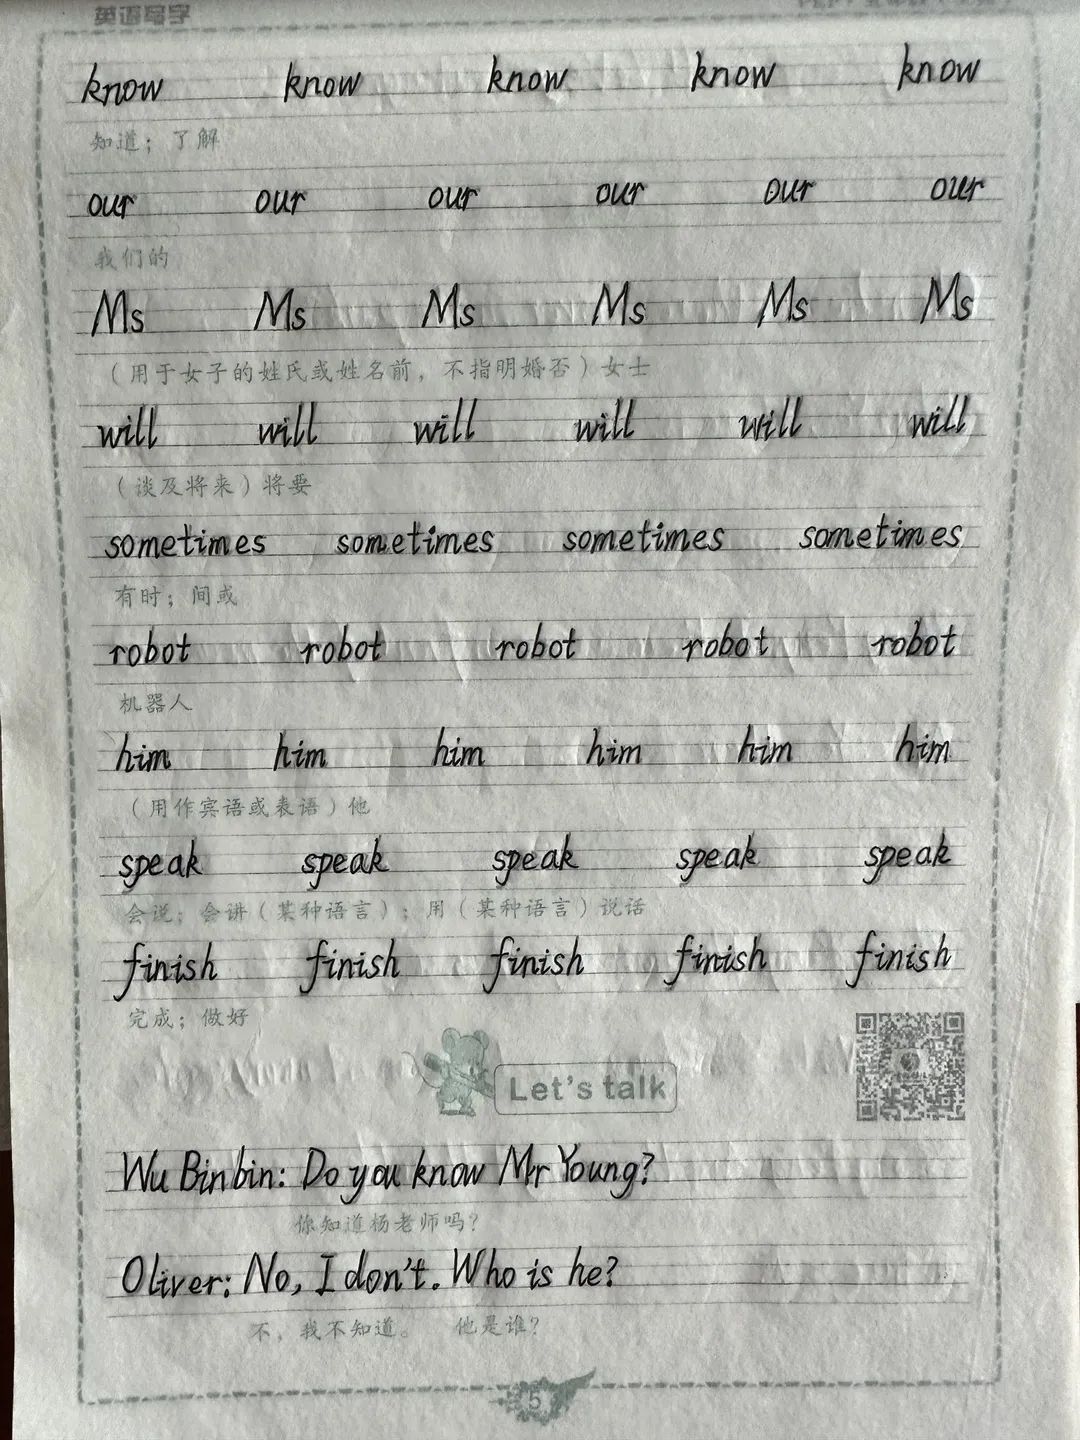 英语写字
know know know know know
知道；了解
our our our our our our
我们的
Ms Ms Ms Ms Ms Ms
（用于女子的姓氏或姓名前，不指明婚否）女士
will will will will will will
（谈及将来）将要
sometimes sometimes sometimes sometimes
有时；间或
robot robot robot robot robot
机器人
him him him him him him
（用作宾语或表语）他
speak speak speak speak speak
会说；会讲（某种语言）；用（某种语言）说话
finish finish finish finish finish
完成；做好
Let's talk
Wu Binbin: Do you know Mr Young?
你知道杨老师吗？
Oliver: No, I don't. Who is he?
不，我不知道。 他是谁？
5